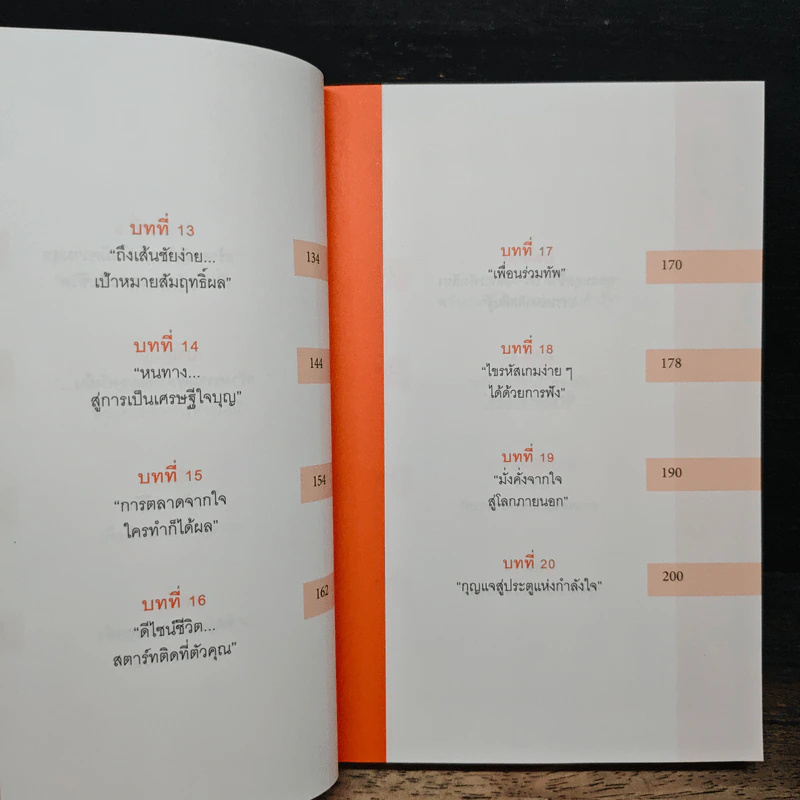 บทที่ 13
“ถึงเส้นชัยง่าย...
เป้าหมายสัมฤทธิ์ผล”
134
บทที่ 14
“หนทาง...
สู่การเป็นเศรษฐีใจบุญ”
144
บทที่ 15
“การตลาดจากใจ
ใครทำก็ได้ผล”
154
บทที่ 16
“ดีไซน์ชีวิต...
สตาร์ทติดที่ตัวคุณ”
162
บทที่ 17
“เพื่อนร่วมทัพ”
170
บทที่ 18
“ไขรหัสเกมง่าย ๆ
ได้ด้วยการฟัง”
178
บทที่ 19
“มั่งคั่งจากใจ
สู่โลกภายนอก”
190
บทที่ 20
“กุญแจสู่ประตูแห่งกำลังใจ”
200